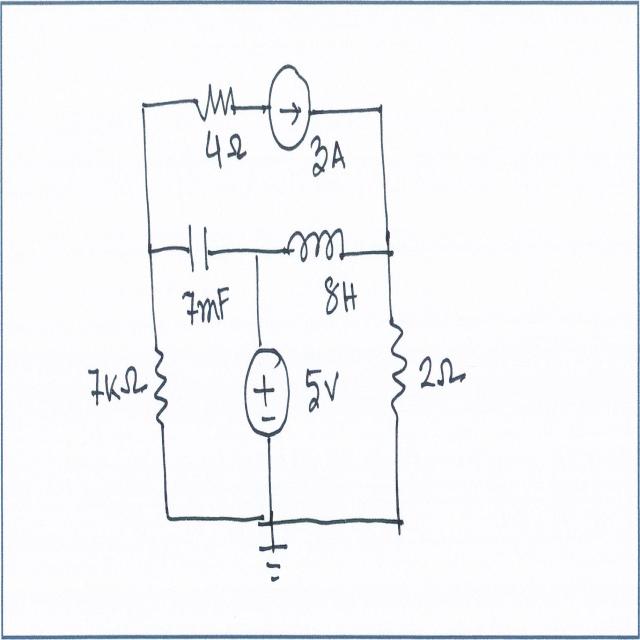 4Ω
3A
7mF
8H
7KΩ
+
-
5V
2Ω